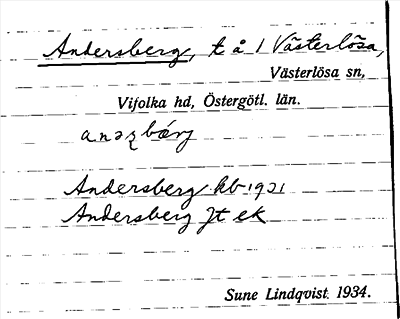 Andersberg, t å 1 Västerlösa,
Västerlösa sn,
Vifolka hd, Östergötl. län.
Andersberg kb 1921
Andersberg Jt ek
Sune Lindqvist 1934.